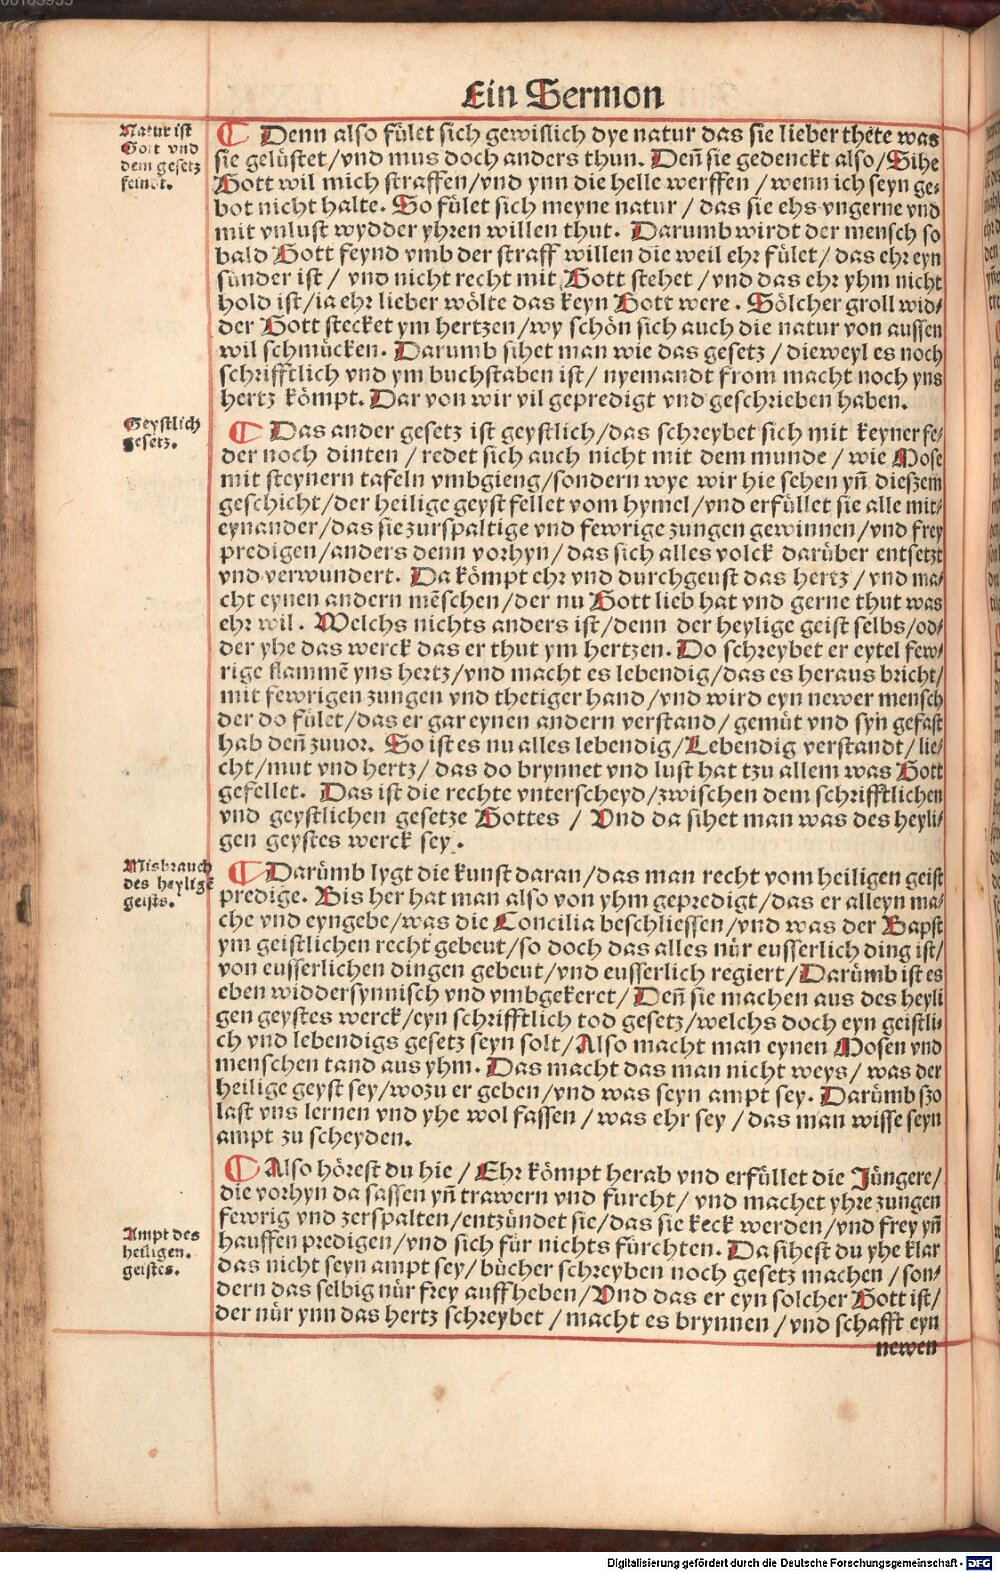 Ein Sermon
Natur ist
Gott vnd
dem gesetz
feindt.
Denn also fület sich gewislich dye natur das sie lieber thete was
sie gelüstet/vnd mus doch anders thun. Deñ sie gedenckt also/Sihe
Gott wil mich straffen/vnd ynn die helle werffen/wenn ich seyn ge-
bot nicht halte. So fület sich meyne natur/das sie ehs vngerne vnd
mit vnlust wydder yhren willen thut. Darumb wirdt der mensch so
bald Gott feynd vmb der straff willen die weil ehr fület/das ehr eyn
sünder ist/vnd nicht recht mit Gott stehet/vnd das ehr yhm nicht
hold ist/ia ehr lieber wölte das keyn Gott were. Sölcher groll wid-
der Gott stecket ym hertzen/wy schön sich auch die natur von aussen
wil schmücken. Darumb sihet man wie das gesetz/dieweyl es noch
schrifftlich vnd ym buchstaben ist/nyemandt from macht noch yns
hertz kömpt. Dar von wir vil gepredigt vnd geschrieben haben.
Geystlich
gesetz.
Das ander gesetz ist geystlich/das schreybet sich mit keyner fe-
der noch dinten/redet sich auch nicht mit dem munde/wie Mose
mit steynern tafeln vmbgieng/sondern wye wir hie sehen yñ dieszem
geschicht/der heilige geyst fellet vom hymel/vnd erfüllet sie alle mit-
eynander/das sie zurspaltige vnd fewrige zungen gewinnen/vnd frey
predigen/anders denn vorhyn/das sich alles volck darüber entsetzt
vnd verwundert. Da kömpt ehr vnd durchgeust das hertz/vnd ma-
cht eynen andern mēschen/der nu Gott lieb hat vnd gerne thut was
ehr wil. Welchs nichts anders ist/denn der heylige geist selbs/od-
der yhe das werck das er thut ym hertzen. Do schreybet er eytel few-
rige flammē yns hertz/vnd macht es lebendig/das es heraus bricht/
mit fewrigen zungen vnd thetiger hand/vnd wird eyn newer mensch
der do fület/das er gar eynen andern verstand/gemüt vnd syn gefast
hab deñ zuuor. So ist es nu alles lebendig/Lebendig verstandt/lie-
cht/mut vnd hertz/das do brynnet vnd lust hat tzu allem was Gott
gefellet. Das ist die rechte vnterscheyd/zwischen dem schrifftlichen
vnd geystlichen gesetze Gottes/Vnd da sihet man was des heyli-
gen geystes werck sey.
Misbrauch
des heyligē
geists.
Darümb lygt die kunst daran/das man recht vom heiligen geist
predige. Bis her hat man also von yhm gepredigt/das er alleyn ma-
che vnd eyngebe/was die Concilia beschliessen/vnd was der Bapst
ym geistlichen recht gebeut/so doch das alles nür eusserlich ding ist/
von eusserlichen dingen gebeut/vnd eusserlich regiert/Darümb ist es
eben widdersynnisch vnd vmbgekeret/Deñ sie machen aus des heyli
gen geystes werck/eyn schrifftlich tod gesetz/welchs doch eyn geistli-
ch vnd lebendigs gesetz seyn solt/Also macht man eynen Mosen vnd
menschen tand aus yhm. Das macht das man nicht weys/was der
heilige geyst sey/wozu er geben/vnd was seyn ampt sey. Darümb szo
last vns lernen vnd yhe wol fassen/was ehr sey/das man wisse seyn
ampt zu scheyden.
Also hörest du hie/Ehr kömpt herab vnd erfüllet die Jüngere/
die vorhyn da sassen yñ trawern vnd furcht/vnd machet yhre zungen
fewrig vnd zerspalten/entzündet sie/das sie keck werden/vnd frey yñ
Ampt des
heiligen.
geistes.
hauffen predigen/vnd sich für nichts fürchten. Da sihest du yhe klar
das nicht seyn ampt sey/bücher schreyben noch gesetz machen/son-
dern das selbig nür frey auffheben/Vnd das er eyn solcher Gott ist/
der nür ynn das hertz schreybet/macht es brynnen/vnd schafft eyn
newen
Digitalisierung gefördert durch die Deutsche Forschungsgemeinschaft - DFG